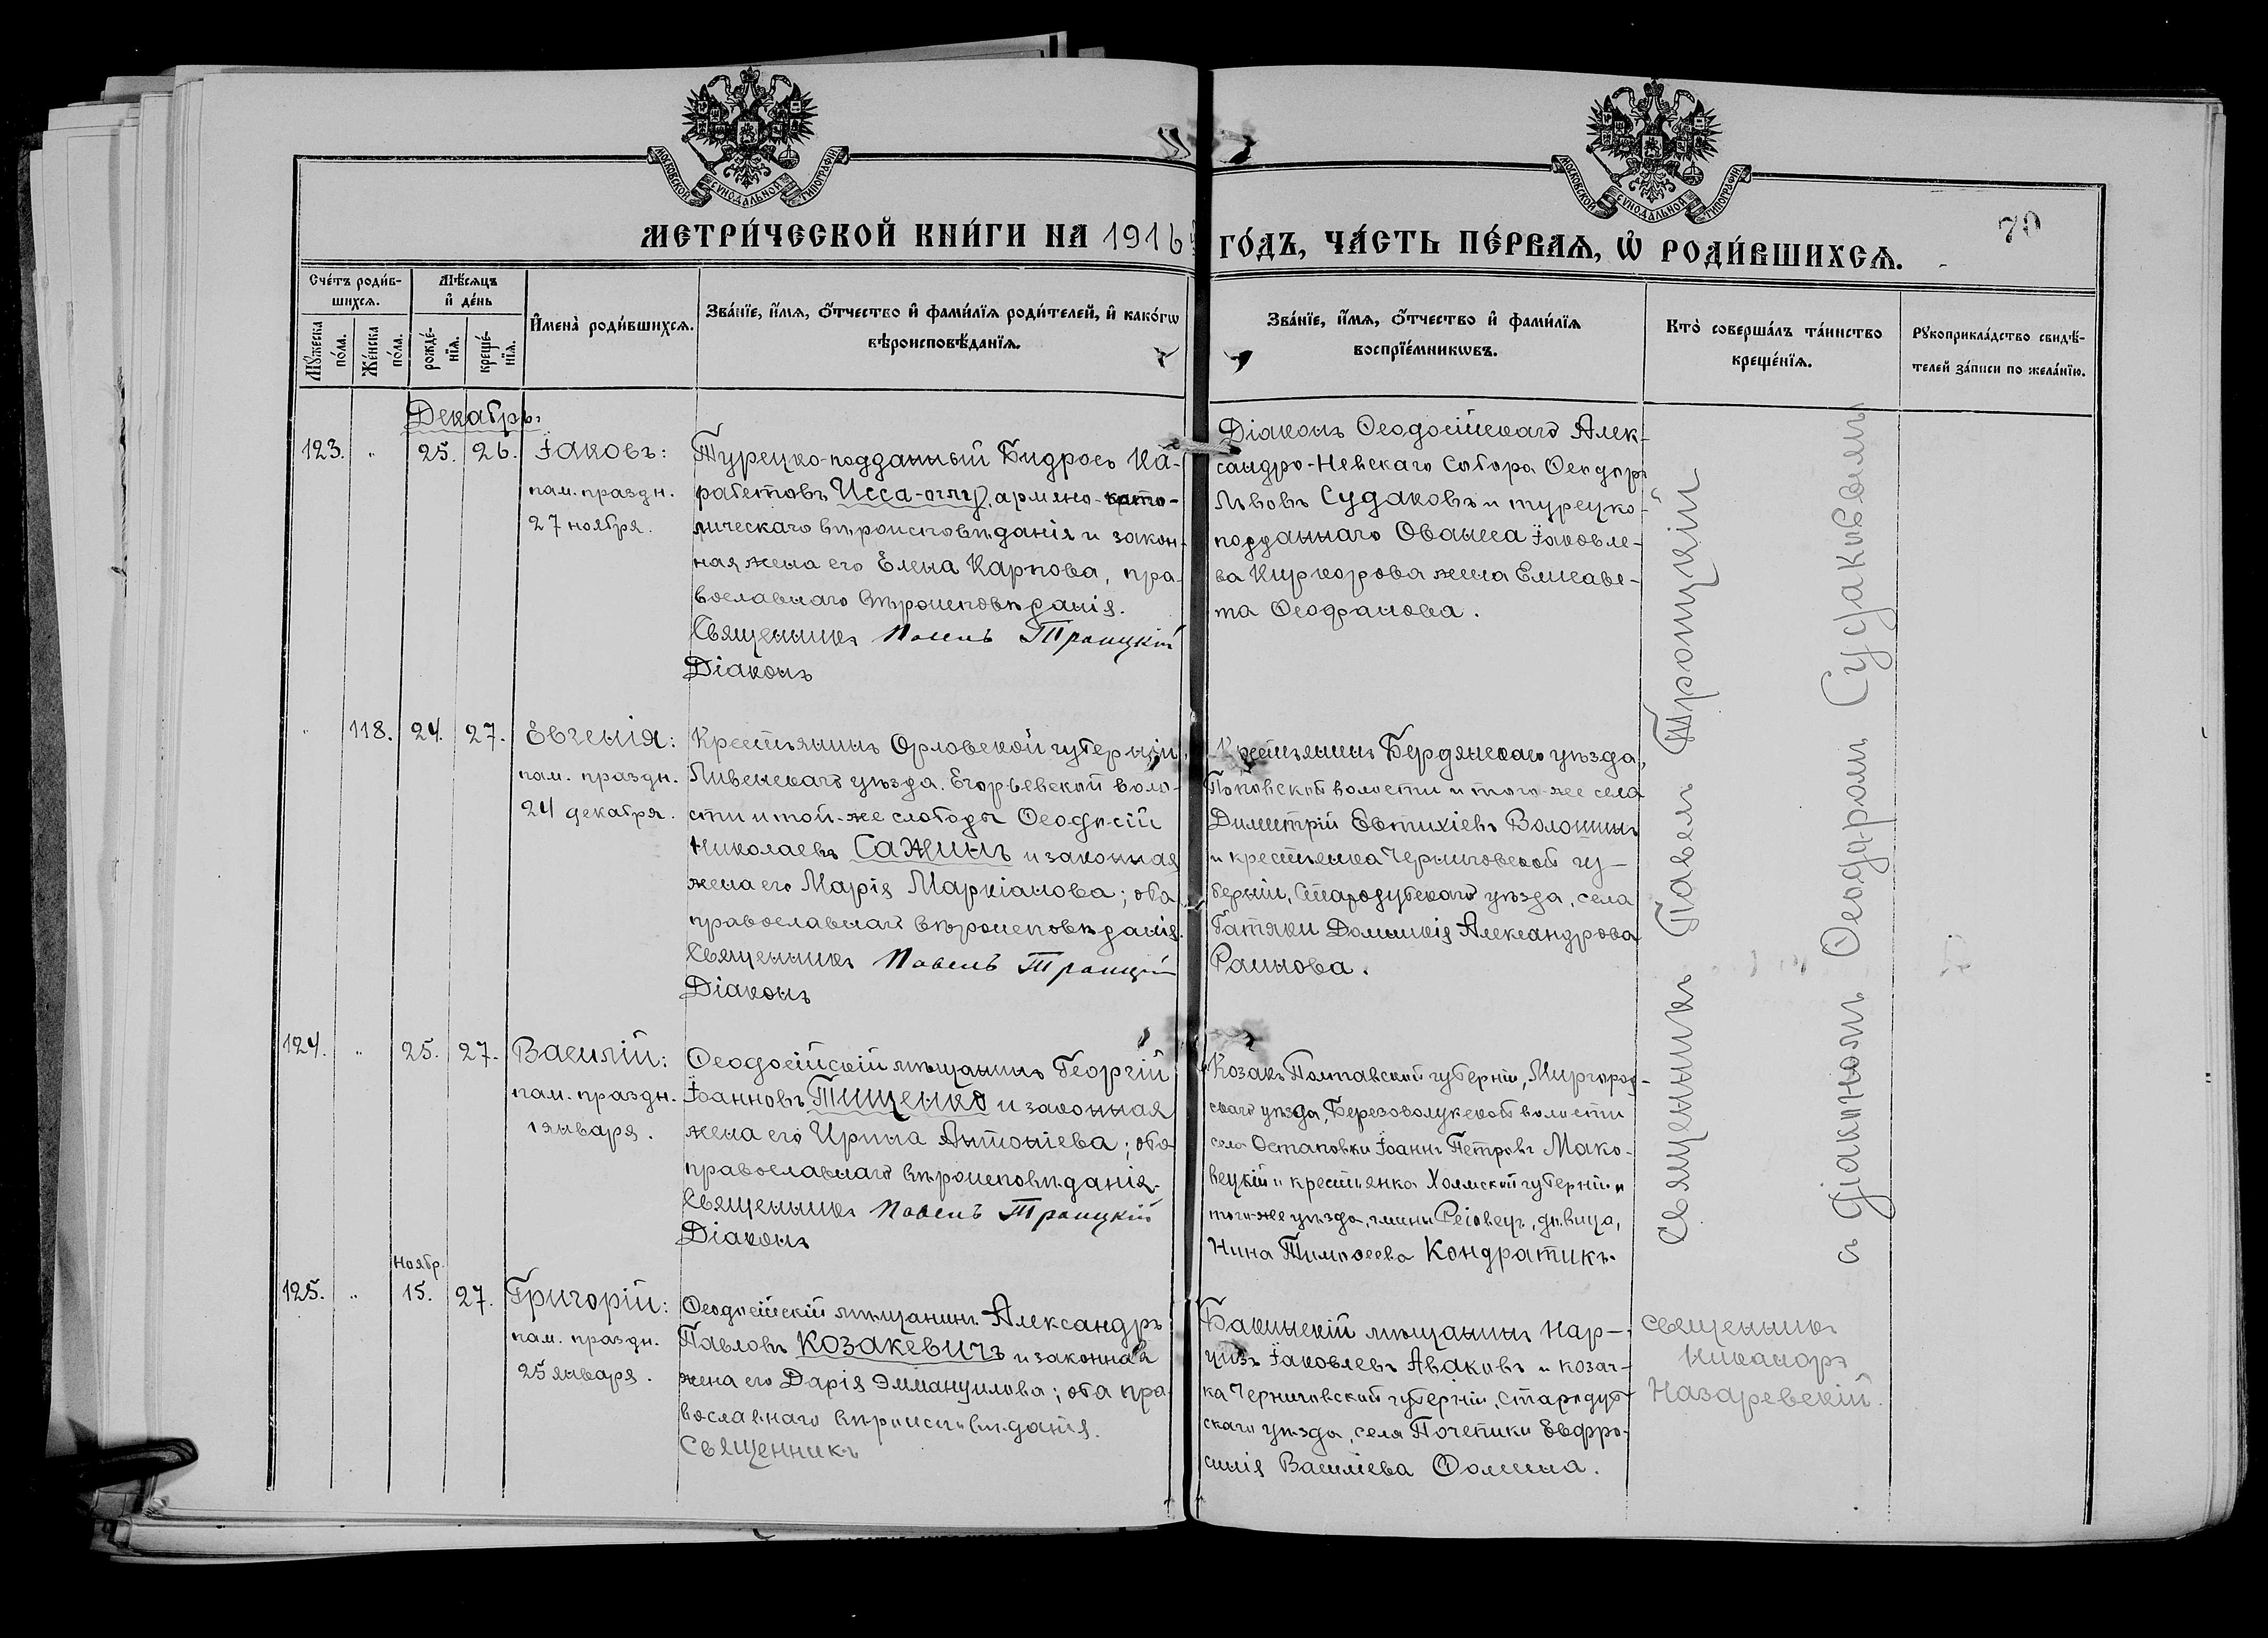 МОСКОВСКОЙ СѴНОДАЛЬНОЙ ТИПОГРАФІИ
МОСКОВСКОЙ СѴНОДАЛЬНОЙ ТИПОГРАФІИ
МЕТРИ́ЧЕСКОЙ КНИ́ГИ НА 1916
ГО́ДЪ, ЧА́СТЬ ПЕ́РВАѦ, Ѡ РОДИ́ВШИХСѦ.
70
Сче́тъ роди́в-
шихсѧ.
Мꙋ́жеска
по́ла.
Же́нска
по́ла.
Мѣ́сѧцъ
и҆ де́нь
рожде́-
нїѧ.
креще́-
нїѧ.
И҆мена̀ роди́вшихсѧ.
Зва́нїе, и҆́мѧ, ѻ҆́тчество и҆ фами́лїѧ роди́телей, и҆ како́гѡ
вѣроисповѣ́данїѧ.
Зва́нїе, и҆́мѧ, ѻ҆́тчество и҆ фами́лїѧ
воспрїе́мникѡвъ.
Кто̀ соверша́лъ та́инство
креще́нїѧ.
Рꙋкоприкла́дство свидѣ́-
телей за́писи по жела́нїю.
Декабрь.
123. „ 25. 26. Іаковъ:
пам. праздн.
27 ноября.
Турецко-подданный Бидросъ Ка-
рабетовъ Исса-оглу, армяно-като-
лическаго вѣроисповѣданія и закон-
ная жена его Елена Карпова, пра-
вославнаго вѣроисповѣданія.
Священникъ Павелъ Троицкій
Діаконъ
Діаконъ Ѳеодосійскаго Алек-
сандро-Невскаго Собора Ѳеодоръ
Львовъ Судаковъ и турецко-
подданнаго Ованеса Іаковле-
ва Киркорова жена Елисаве-
та Ѳеофанова.
„ 118. 24. 27. Евгенія:
пам. праздн.
24 декабря.
Крестьянинъ Орловской губерніи,
Ливенскаго уѣзда. Егорьевской воло-
сти и той-же слободы Ѳеодосій
Николаевъ Сажинъ и законная
жена его Марія Маркіанова; оба
православнаго вѣроисповѣданія.
Священникъ Павелъ Троицкій
Діаконъ
Крестьянинъ Бердянскаго уѣзда,
Поповской волости и того-же села
Димитрій Евтихіевъ Волошинъ
и крестьянка Черниговской гу-
берніи, Стародубскаго уѣзда, села
Гатяки Домникія Александрова
Раинова.
124. „ 25. 27. Василій:
пам. праздн.
1 января.
Ѳеодосійскій мѣщанинъ Георгій
Іоанновъ Тищенко и законная
жена его Ирина Антоніева; оба
православнаго вѣроисповѣданія.
Священникъ Павелъ Троицкій
Діаконъ
Козакъ Полтавской губерніи, Миргород-
скаго уѣзда, Березоволукской волости
села Остаповки Іоаннъ Петровъ Мако-
вецкій и крестьянка Холмской губерніи и
того-же уѣзда, гмины Реіовецъ, дѣвица,
Нина Тимоѳеева Кондратикъ.
Ноябр.
125. „ 15. 27. Григорій:
пам. праздн.
25 января.
Ѳеодосійскій мѣщанинъ Александръ
Павловъ Козакевичъ и законная
жена его Дарія Эммануилова; оба пра-
вославнаго вѣроисповѣданія.
Священникъ
Бакинскій мѣщанинъ Нар-
цизъ Іаковлевъ Аваковъ и козач-
ка Черниговской губерніи, Стародуб-
скаго уѣзда, села Почепики Евфро-
синія Василіева Ѳомина.
Священникъ Павелъ Троицкій
съ діакономъ Ѳеодоромъ Судаковымъ
священникъ
Никаноръ
Назаревскій.